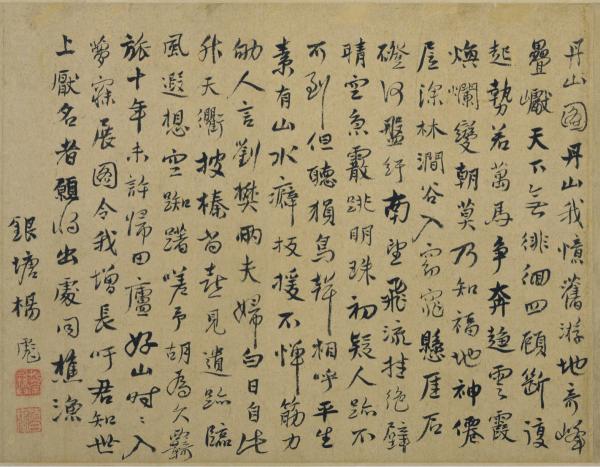 丹山圖丹山我憶舊游地奇峰
疊巘天下無徘徊四顧斷復
起勢若萬馬爭奔趨雲霞
煥爛變朝莫乃知福地神僊
居深林澗谷入窈窕懸厓石
磴何盤紆南望飛流挂絕壁
晴空急霰跳明珠初疑人跡不
不到但聽猨鳥聲相呼平生
素有山水癖扳援不憚筋力
劬人言劉樊兩夫婦白日自此
升天衢披榛尚喜見遺跡臨
風遐想空踟躇嗟予胡為久羇
旅十年未許歸田廬好山時〻入
夢寐展圖令我增長吁君知世
上厭名者願將出處同樵漁
銀塘楊